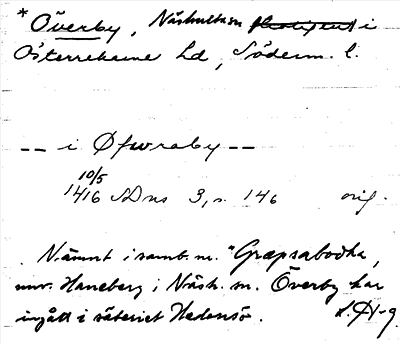 * Överby, Näshulta sn i
Österrekarne hd, Söderm. l.
-- i Øfwraby --
10/5
1416 SDns 3, s. 146 orig.
Nämnt i samb. m. *Græpsabodha,
nuv. Haneberg i Näsh. sn. Överby har
ingått i säteriet Hedensö.